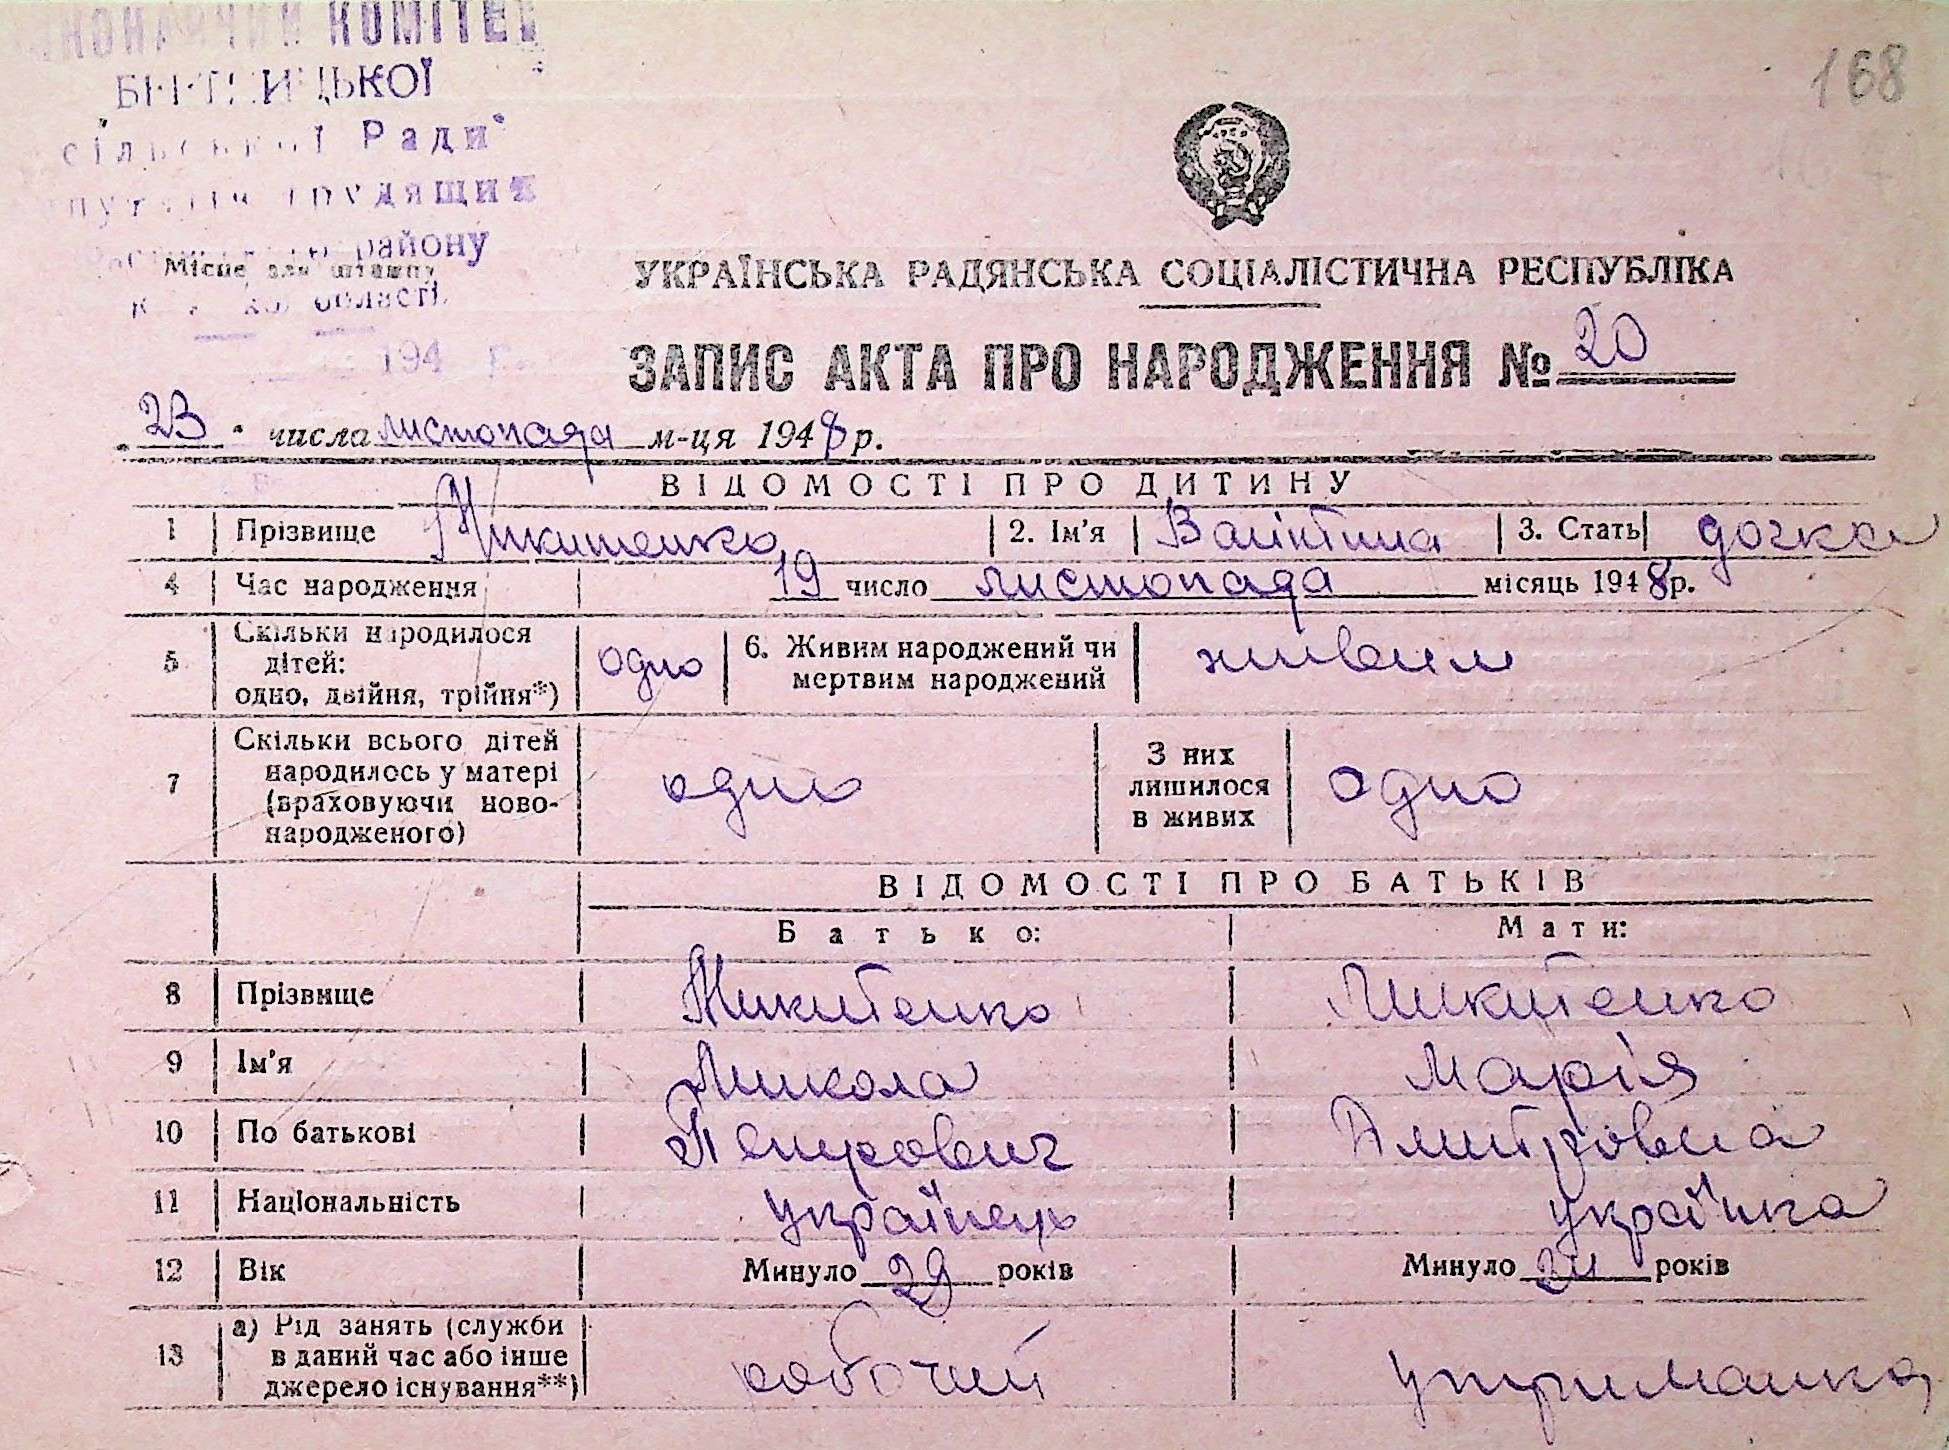 КОМІТЕТ
сільської Ради
трудящих
району
Місце для штампу
області.
194 р.
168
УКРАЇНСЬКА РАДЯНСЬКА СОЦІАЛІСТИЧНА РЕСПУБЛІКА
ЗАПИС АКТА ПРО НАРОДЖЕННЯ № 20
23 числа листопада м-ця 1948 р.
ВІДОМОСТІ ПРО ДИТИНУ
1 Прізвище Микитенко 2. Ім'я Валінтина 3. Стать дочка
4 Час народження 19 число листопада місяць 1948 р.
5 Скільки народилося дітей: одно, двійня, трійня*) одно 6. Живим народжений чи мертвим народжений живим
7 Скільки всього дітей народилось у матері (враховуючи ново-народженого) одно З них лишилося в живих одно
ВІДОМОСТІ ПРО БАТЬКІВ
Батько: Мати:
8 Прізвище Микитенко Микитенко
9 Ім'я Микола Марія
10 По батькові Петрович Дмитровна
11 Національність українець українка
12 Вік Минуло 29 років Минуло 24 років
13 а) Рід занять (служби в даний час або інше джерело існування**) робочий утриманка